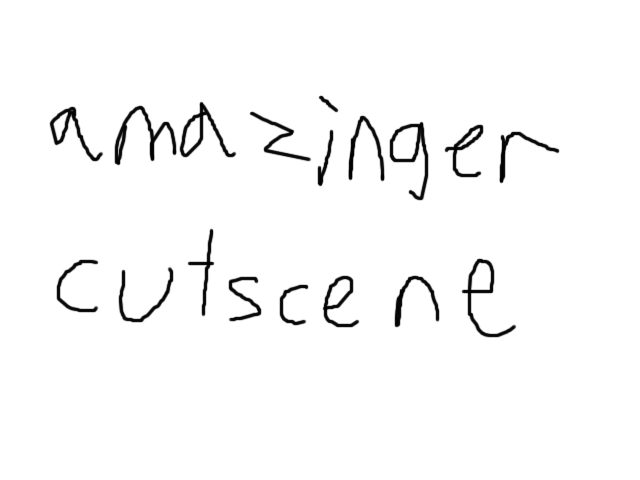 amazinger
cutscene